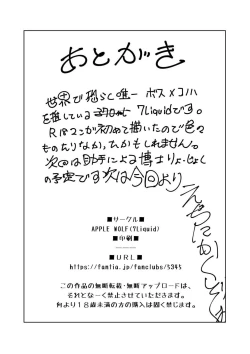 あとがき
世界で恐らく唯一 ボス×コハ
を推している 7Liquidです。
R18マンガ初めて描いたので色々
ものたりなかったかもしれません。
次回は助手による博士
の予定です 次は今回より
■サークル■
APPLE WOLF(7Liquid)
■印刷■
———
■URL■
https://fantia.jp/fanclubs/5345
この作品の無断転載・無断アップロードは、
それとな~く禁止させていただきます。
台より18歳未満の方の購入は固く禁じます。